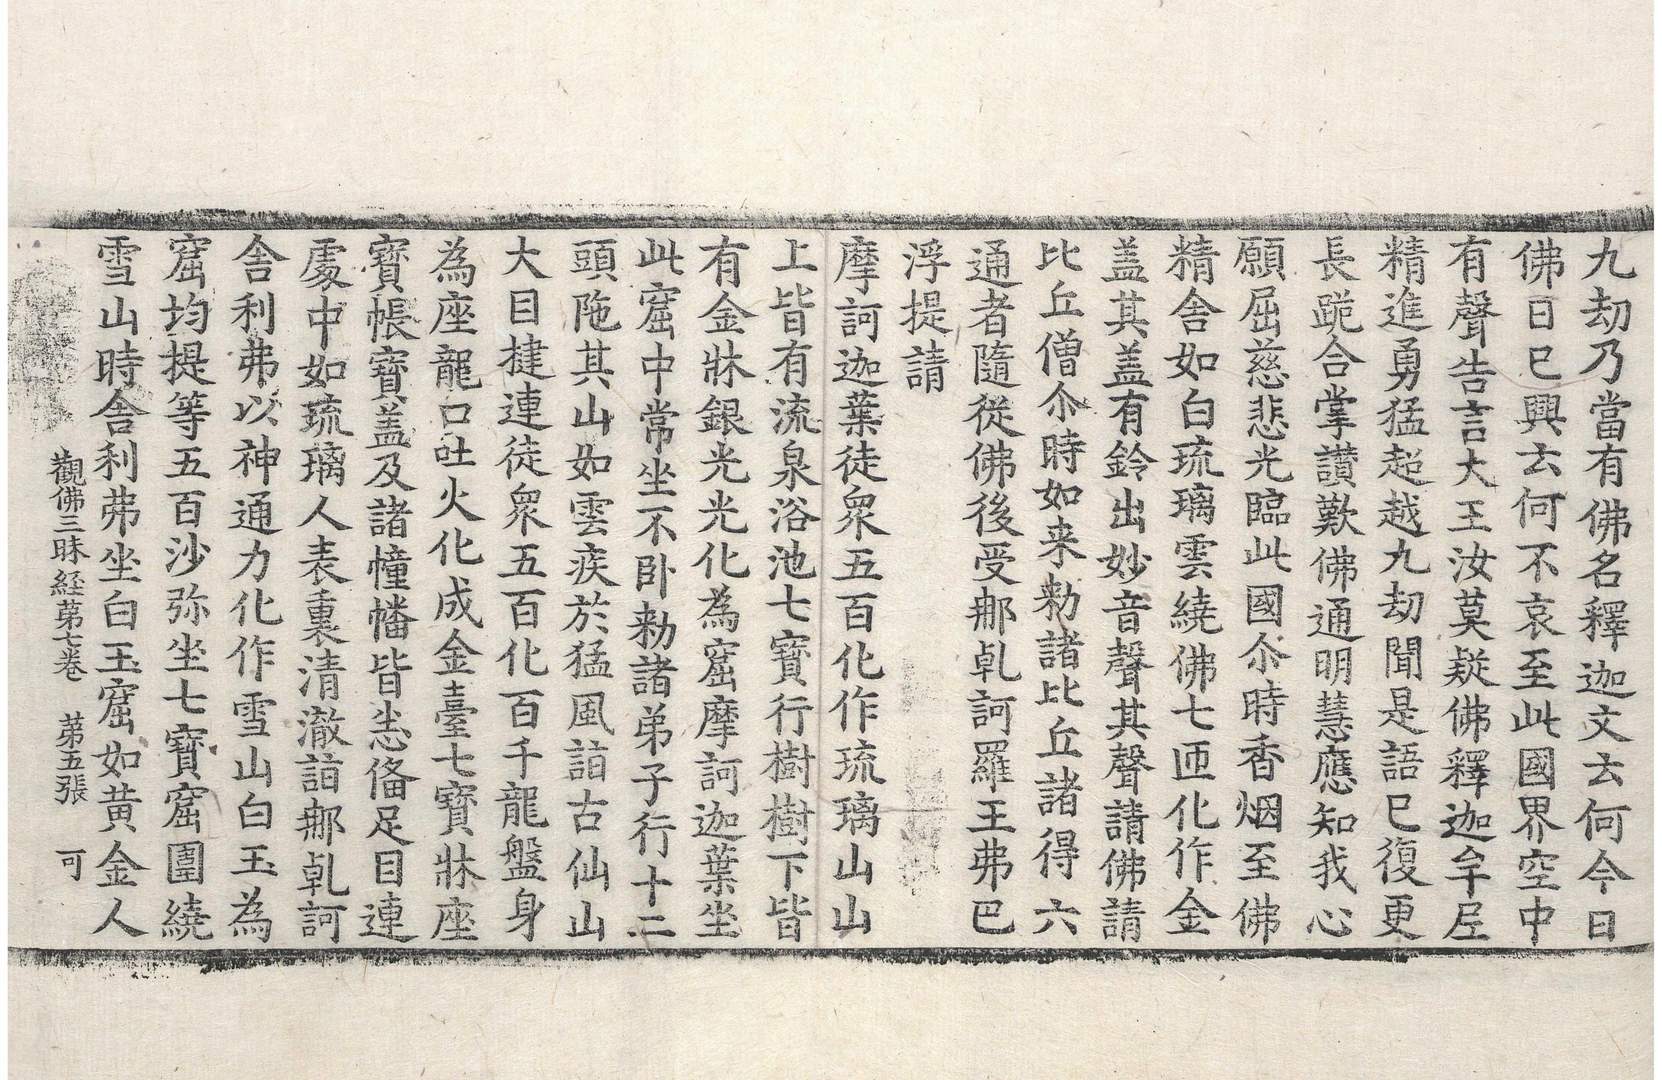 九劫乃當有佛名釋迦文去何今日
佛日已興去何不哀至此國界空中
有聲告言大王汝莫疑佛釋迦牟尼
精進勇猛超越九劫聞是語已復更
長跪合掌讃歎佛通明慧應知我心
願屈慈悲光臨此國尒時香烟至佛
精舍如白琉璃雲繞佛七匝化作金
盖其盖有鈴出妙音聲其聲請佛請
比丘僧尒時如来勑諸比丘諸得六
通者隨從佛後受那乹訶羅王弗巴
浮提請
摩訶迦葉徒衆五百化作琉璃山山
上皆有流泉浴池七寳行樹樹下皆
有金牀銀光光化為窟摩訶迦葉坐
此窟中常坐不卧勑諸弟子行十二
頭陁其山如雲疾於猛風詣古仙山
大目揵連徒衆五百化百千龍盤身
為座龍口吐火化成金臺七寳牀座
寳帳寳盖及諸幢幡皆悉俻足目連
處中如琉璃人表裏清澈詣那乹訶
舎利弗以神通力化作雪山白玉為
窟均提等五百沙弥坐七寳窟圍繞
雪山時舎利弗坐白玉窟如黄金人
觀佛三昧経苐七卷 苐五張 可